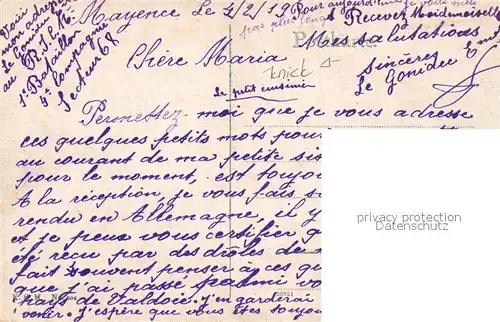 Voici
mon adresse
Le Gonidec
au R.I.C.M.
1e Bataillon
4e Compagnie
Secteur 68
Mayence le 4/2/19
Pour aujourd'hui
pas plus long
Recevez Mademoiselle
Mes salutations
sincères
Le Gonidec
Chère Maria
knick
Le petit cuisinier
Permettez-moi que je vous adresse
ces quelques petits mots pour
au courant de ma petite
pour le moment, est toujours
A la réception, je vous fais
rendu en Allemagne, il y
et je peux vous certifier
été reçu par des drôles de
fait souvent penser à ces
que j'ai passé parmi vous
pays de Valdoie. J'en garderai
venir. J'espère que vous êtes toujours
privacy protection
Datenschutz